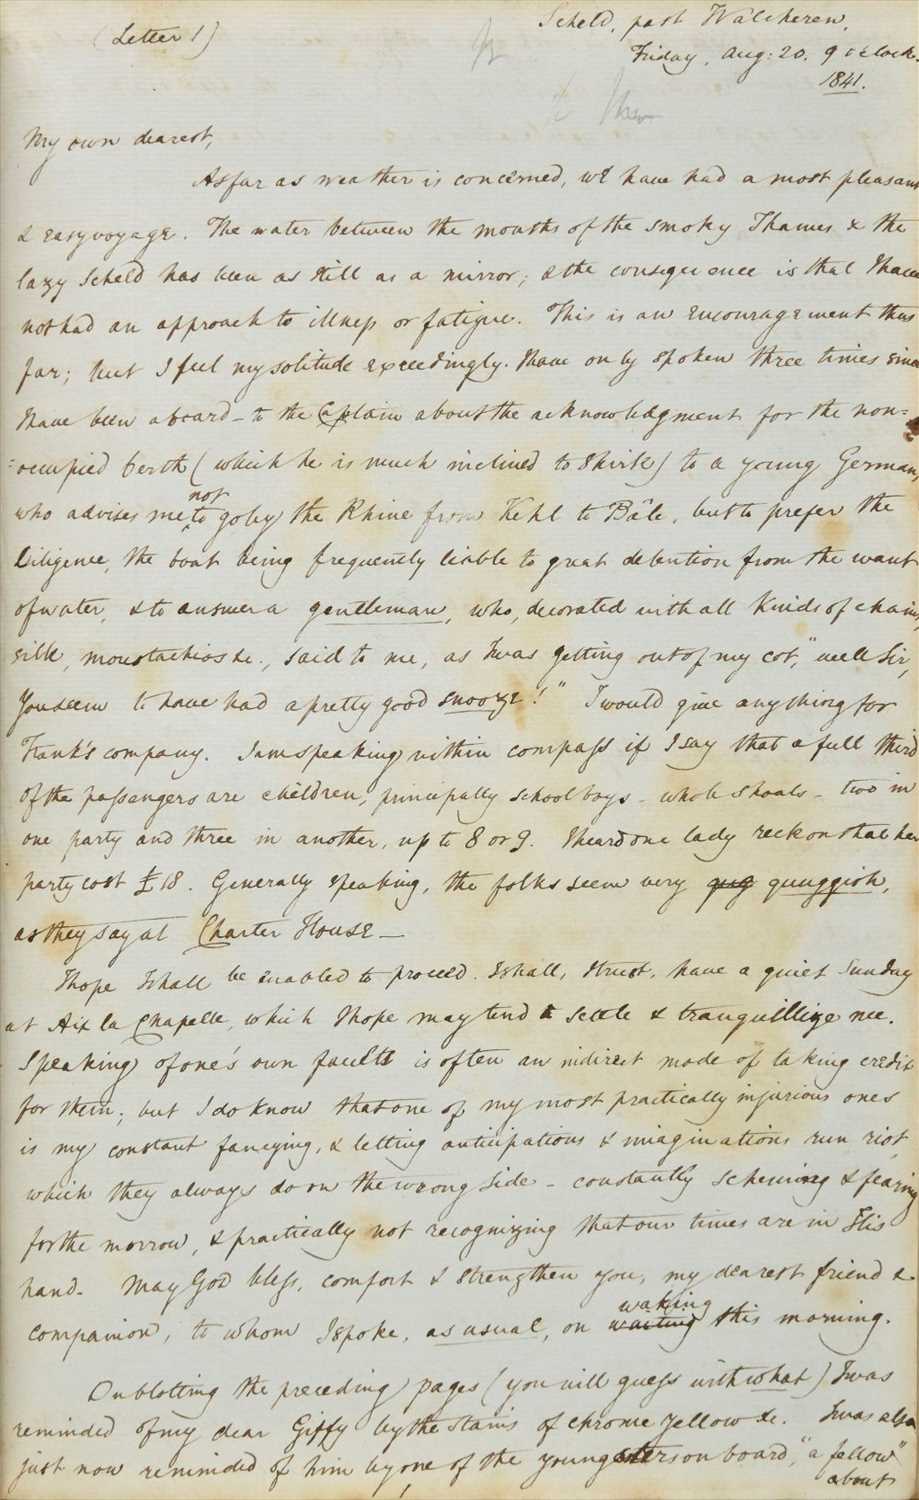 (Letter 1)
Scheld, past Walcheren,
Friday, Aug: 20. 9 o'clock.
1841.
My own dearest,
As far as weather is concerned, we have had a most pleasant
& easy voyage. The water between the mouths of the smoky Thames & the
lazy Scheld has been as still as a mirror; & the consequence is that I have
not had an approach to illness or fatigue. This is an encouragement thus
far; but I feel my solitude exceedingly. I have only spoken three times since
I have been aboard – to the Captain about the acknowledgment for the non=
=occupied berth (which he is much inclined to shirk) to a young German,
who advises me not to go by the Rhine from Kehl to Bâle, but to prefer the
Diligence, the boat being frequently liable to great detention from the want
of water, & to answer a gentleman, who, decorated with all kinds of chains,
silk, moustachios &c., said to me, as I was getting out of my cot, "well Sir,
you seem to have had a pretty good snooze!" I would give anything for
Frank's company. I am speaking within compass if I say that a full third
of the passengers are children, principally schoolboys – whole shoals – two in
one party and three in another, up to 8 or 9. I heard one lady reckon that her
party cost £18. Generally speaking, the folks seem very gug quuggish,
as they say at Charter House –
I hope I shall be enabled to proceed. I shall, I trust, have a quiet Sunday
at Aix la Chapelle, which I hope may tend to settle & tranquillize me.
Speaking of one's own faults is often an indirect mode of taking credit
for them; but I do know that one of my most practically injurious ones
is my constant fancying, & letting anticipations & imaginations run riot,
which they always do on the wrong side – constantly scheming & fearing
for the morrow, & practically not recognizing that our times are in His
hand. May God bless, comfort & strengthen you, my dearest friend &
companion, to whom I spoke, as usual, on waiting waking this morning.
On blotting the preceding pages (you will guess with what) I was
reminded of my dear Giffy by the stains of chrome yellow &c. I was also
just now reminded of him by one of the youngsters on board, "a fellow"
about